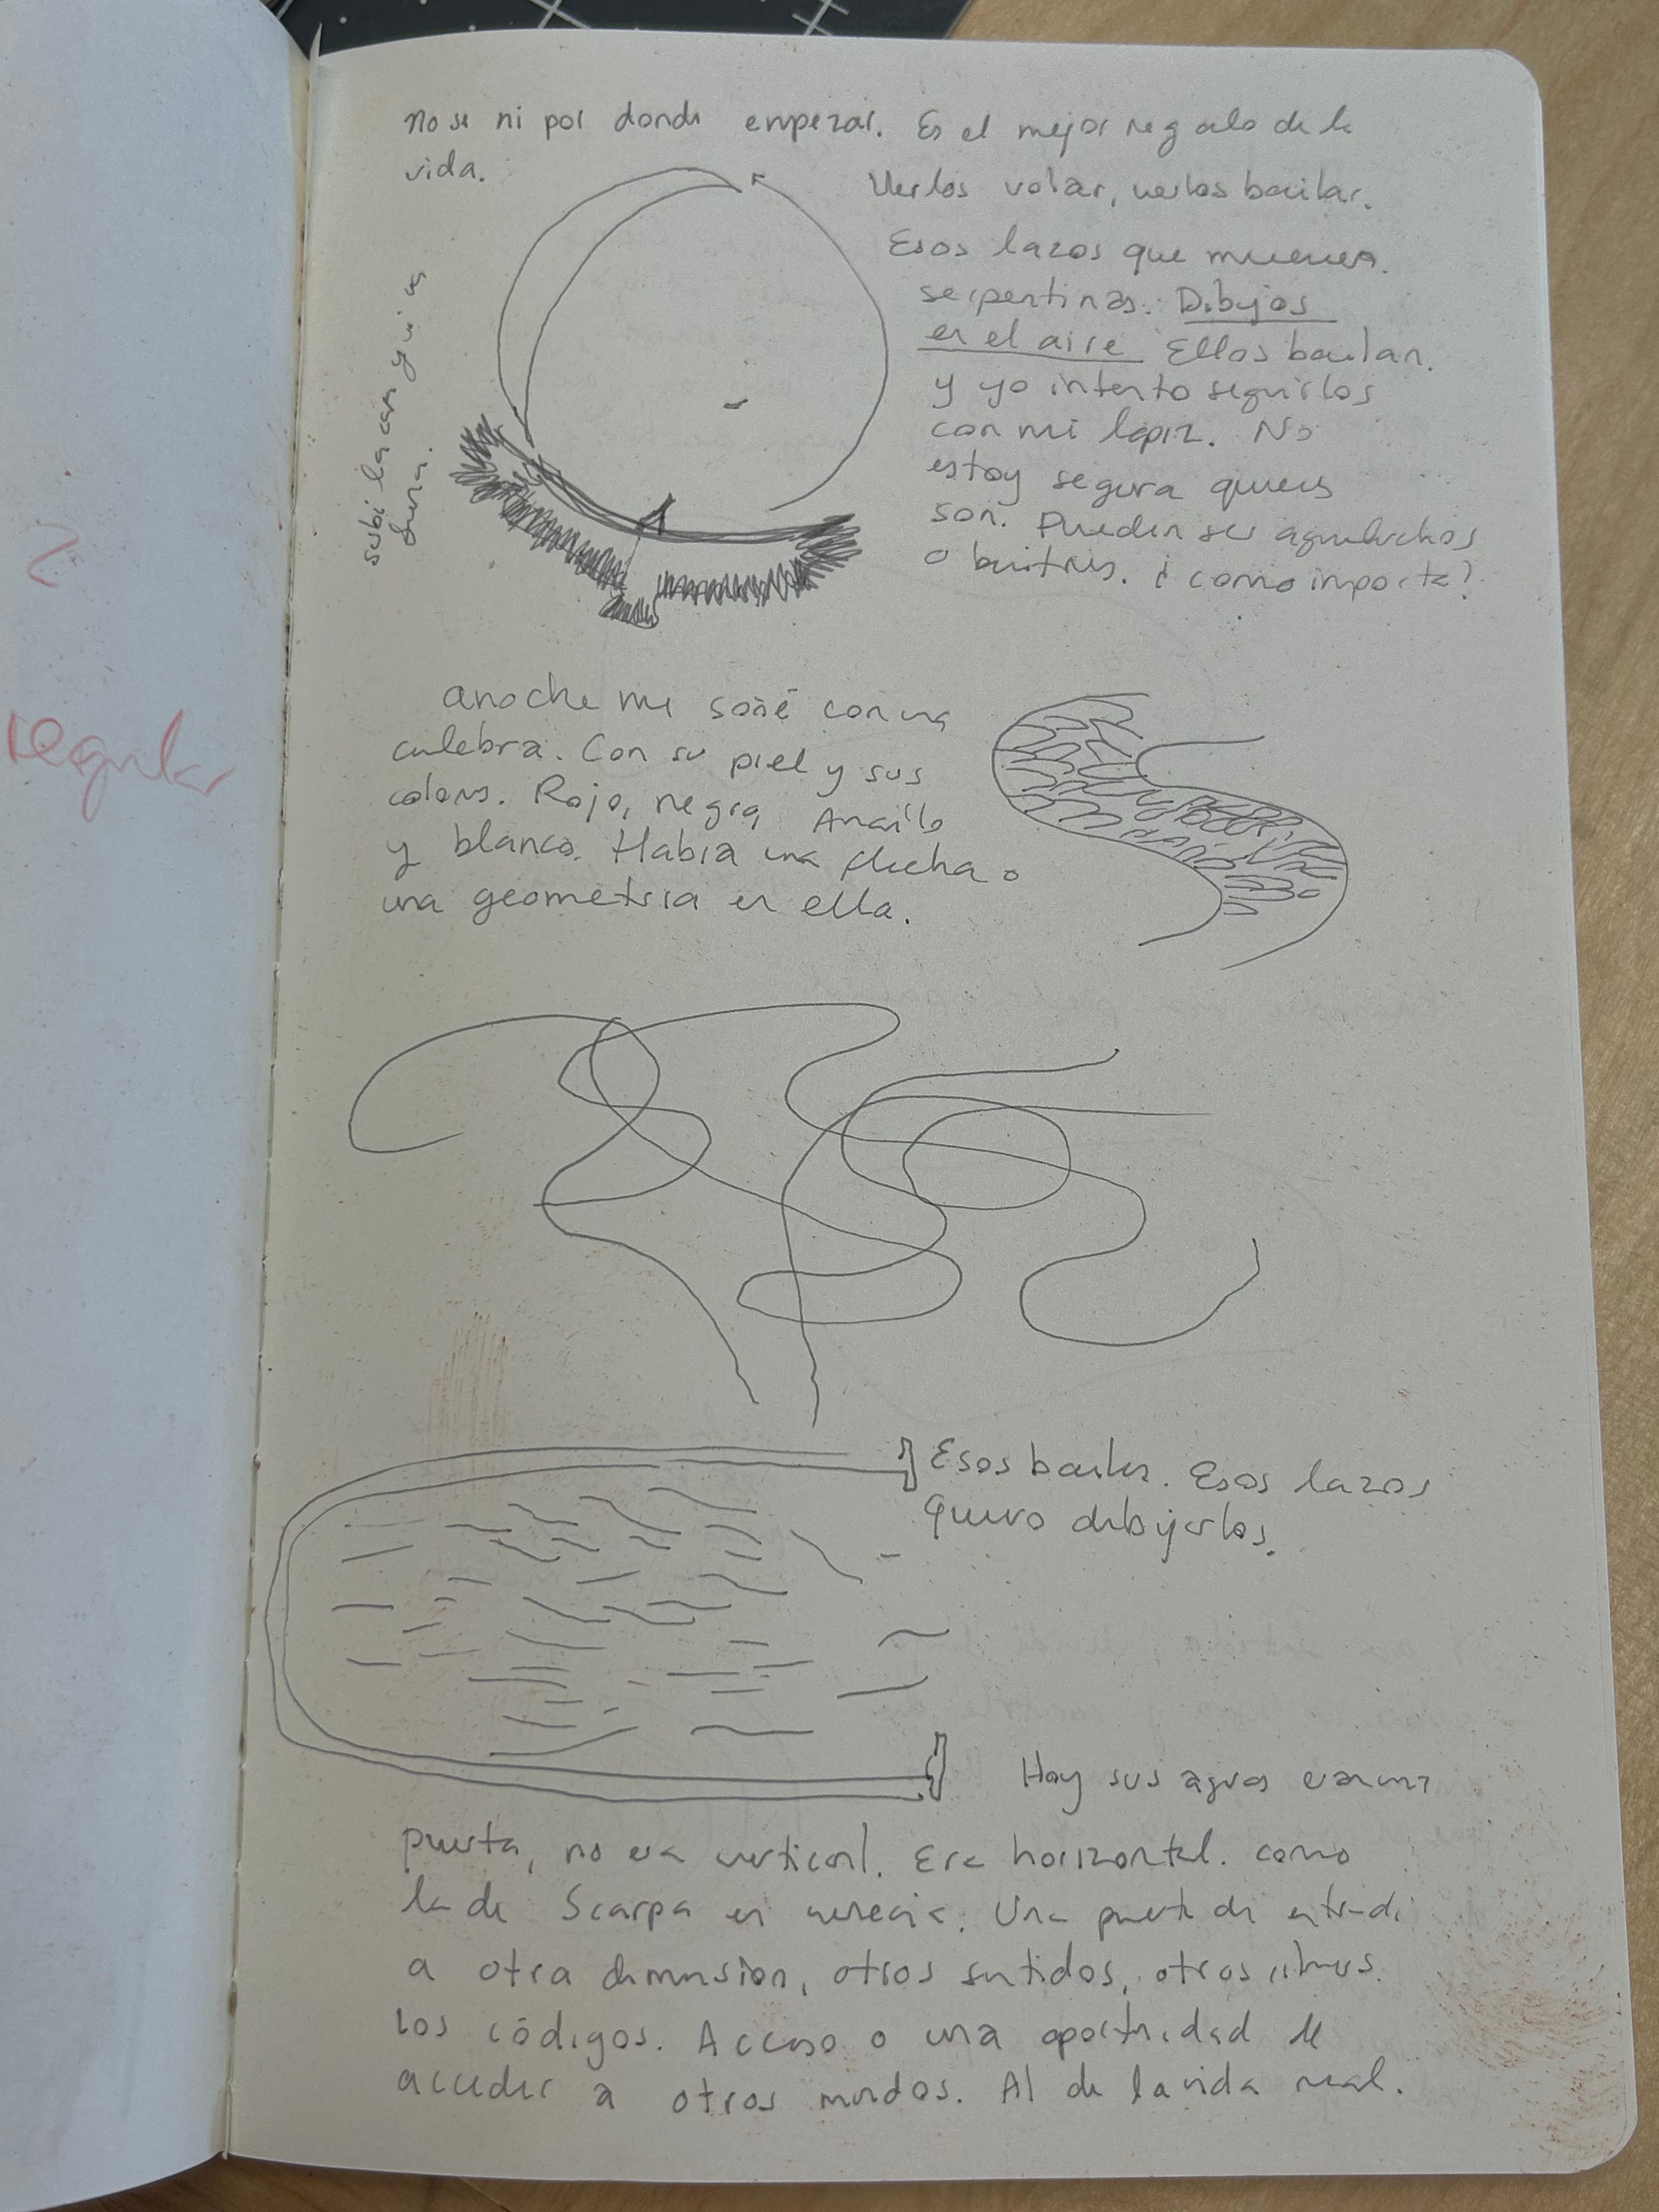 no se ni por donde empezar. Es el mejor regalo de la
vida.
Verlos volar, verlos bailar.
Esos lazos que mueven.
serpentinas. Dibujos
en el aire Ellos bailan.
y yo intento seguirlos
con mi lapiz. No
estoy segura quienes
son. Pueden ser aguiluchos
o buitres. ¿ como importa?
subi la cara y vi es
luna.
anoche me soñé con una
culebra. Con su piel y sus
colores. Rojo, negro, Amarillo
y blanco. Habia una flecha o
una geometria en ella.
Esos bailes. Esos lazos
Quiero dibujarlos.
Hoy sus aguas eran una
puerta, no era vertical. Era horizontal. como
la de Scarpa en venecia. Una puerta de entrada
a otra dimension, otros sentidos, otros ritmos.
los códigos. Acceso o una oportunidad de
acceder a otros mundos. Al de la vida real.
regular